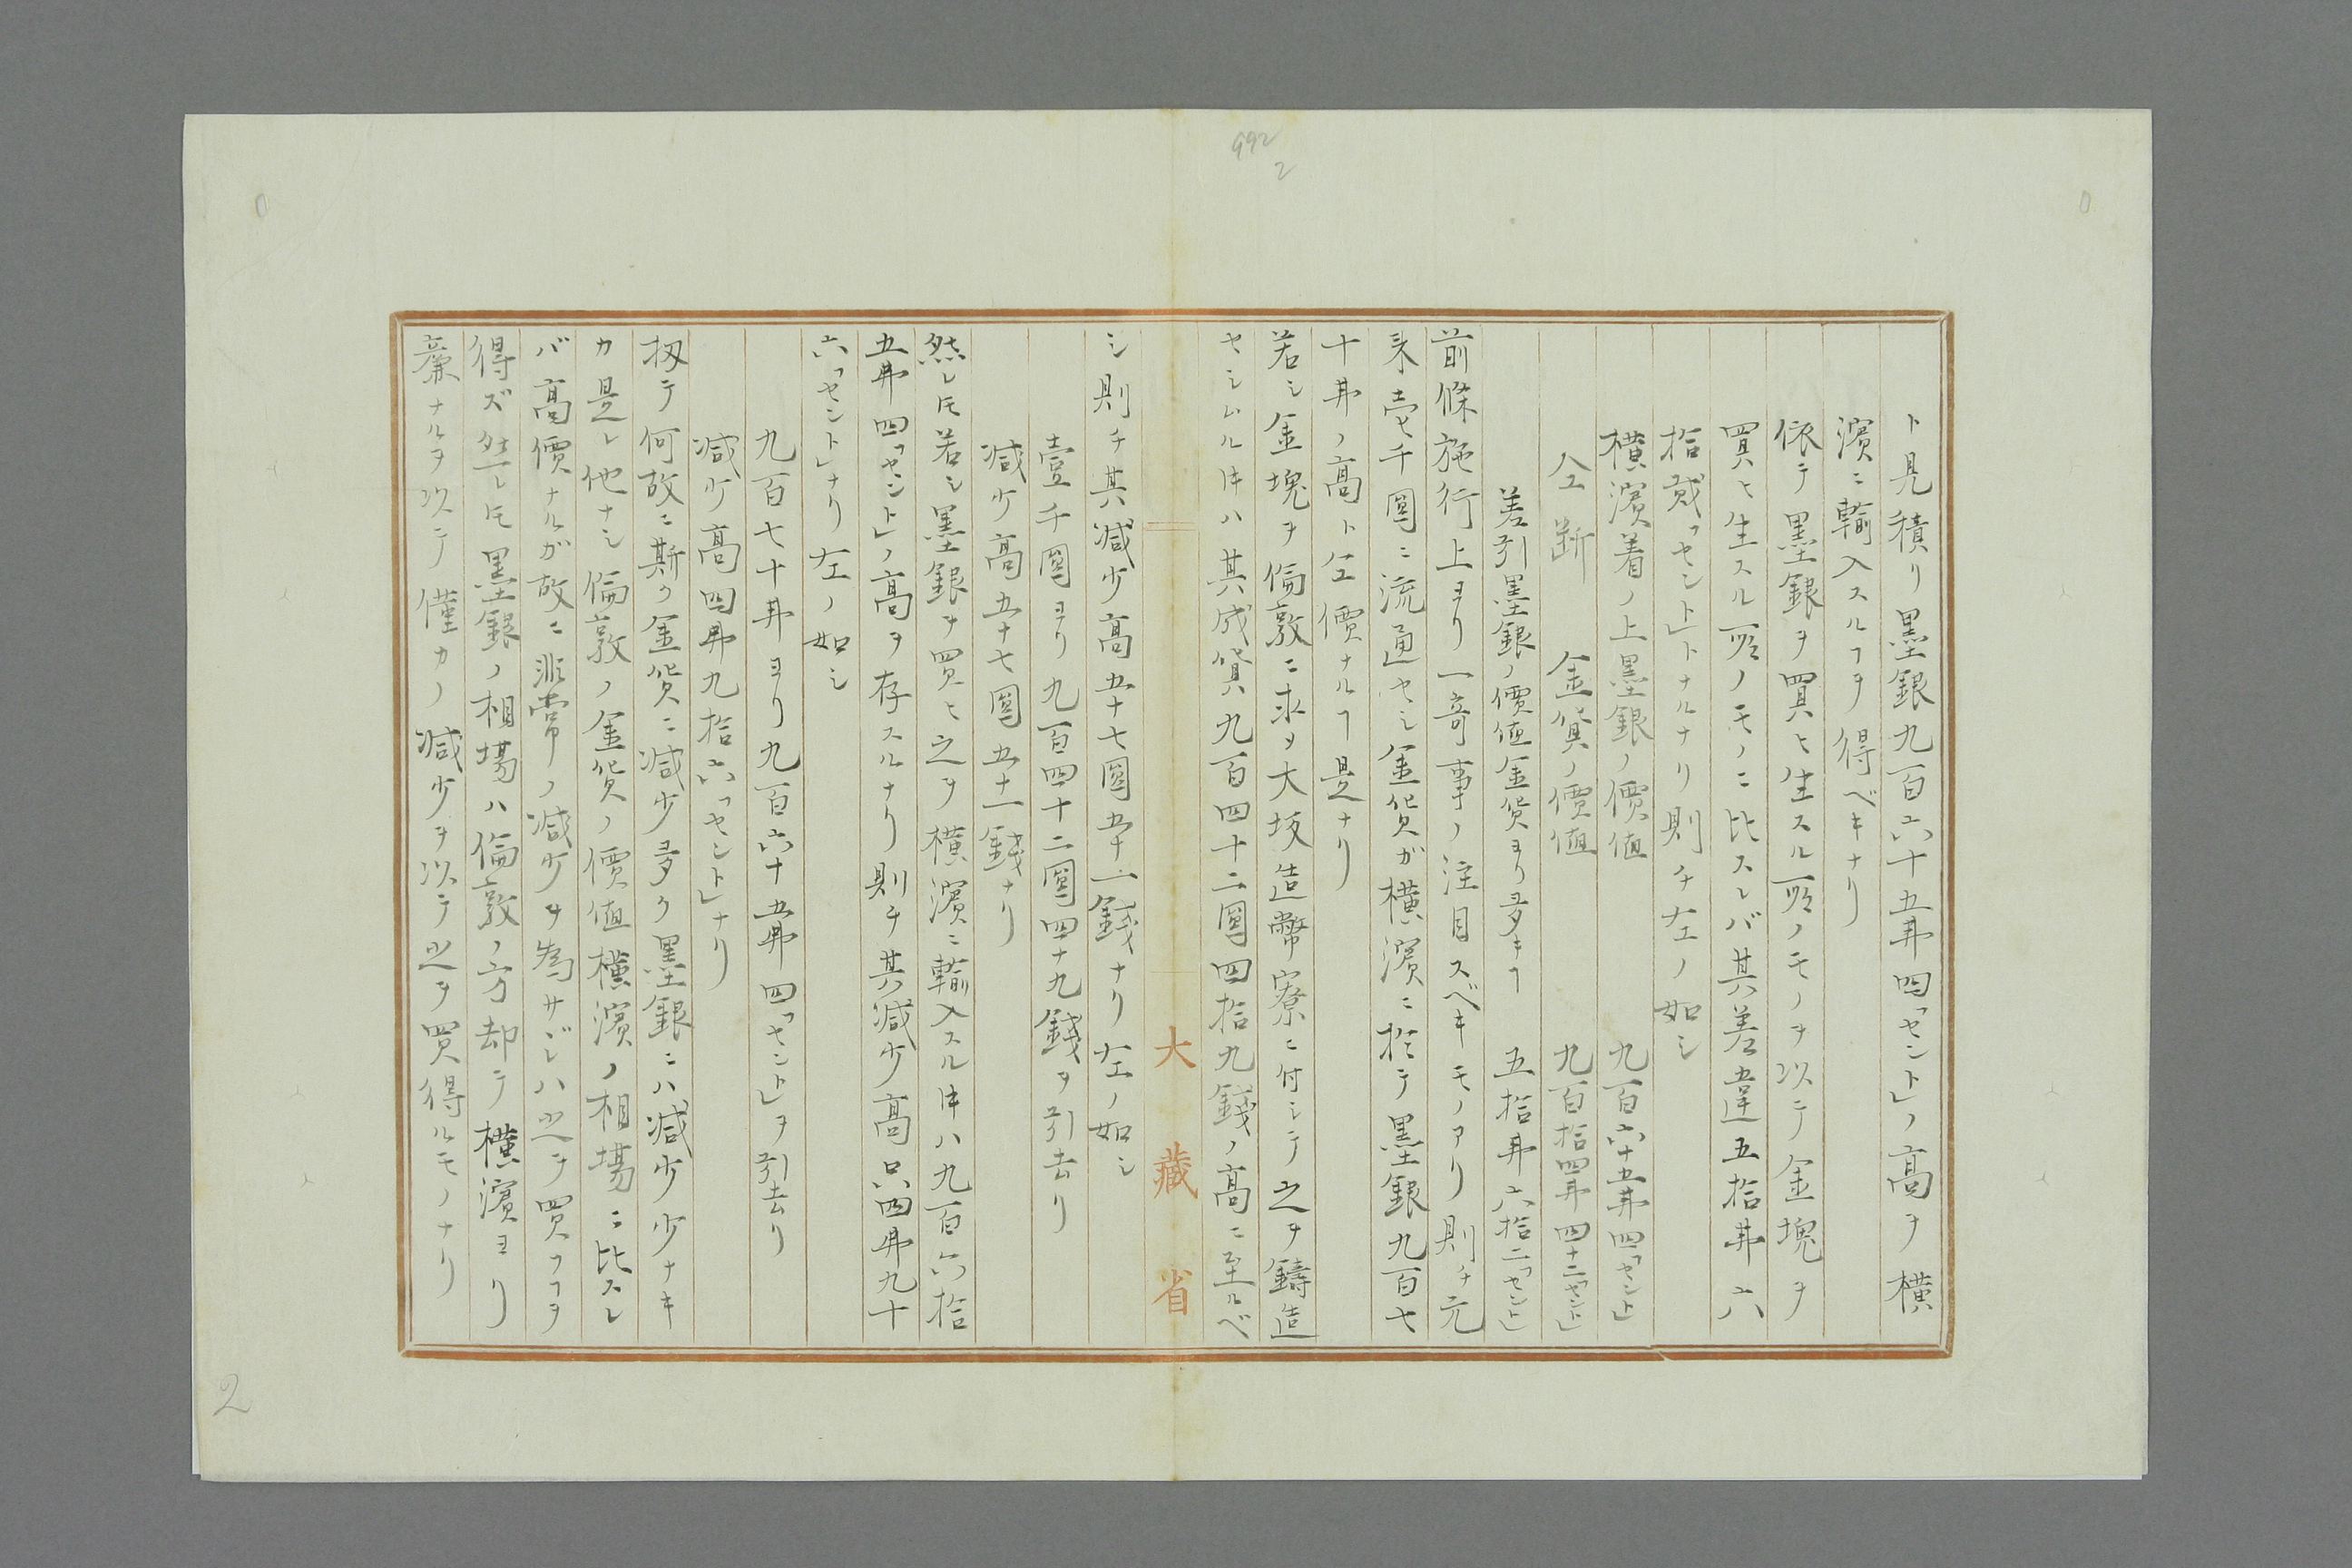 992
2
ト見積リ墨銀九百六十五弗四「セント」ノ高ヲ横
濱ニ輸入スルヿヲ得ベキナリ
依テ墨銀ヲ買ヒ生スル所ノモノヲ以テ金塊ヲ
買ヒ生スル所ノモノニ比スレバ其差違五拾弗六
拾貳「セント」トナルナリ則チ左ノ如シ
横濱着ノ上墨銀ノ價値 九百六十五弗四「セント」
仝断 金貨ノ價値 九百拾四弗四十二「セント」
差引墨銀ノ價値金貨ヨリ多キヿ 五拾弗六拾二「セント」
前條施行上ヨリ一奇事ノ注目スベキモノアリ則チ元
来壱千圓ニ流通セシ金貨ガ横濱ニ於テ墨銀九百七
十弗ノ高ト仝價ナルヿ是ナリ
若シ金塊ヲ倫敦ニ求メ大坂造幣寮ニ付シテ之ヲ鑄造
セシムル時ハ其成貨九百四十二圓四拾九錢ノ高ニ至ルベ
大藏省
シ則チ其減少高五十七圓五十一錢ナリ左ノ如シ
壹千圓ヨリ九百四十二圓四十九錢ヲ引去リ
減少高五十七圓五十一錢ナリ
然レ𪜈若シ墨銀ヲ買ヒ之ヲ横濱ニ輸入スル時ハ九百六拾
五弗四「セント」ノ高ヲ存スルナリ則チ其減少高只四弗九十
六「セント」ナリ左ノ如シ
九百七十弗ヨリ九百六十五弗四「セント」ヲ引去リ
減少高四弗九拾六「セント」ナリ
扨テ何故ニ斯ク金貨ニ減少多ク墨銀ニハ減少少ナキ
カ是レ他ナシ倫敦ノ金貨ノ價値横濱ノ相場ニ比スレ
バ高價ナルガ故ニ非常ノ減少ヲ為サヾレハ之ヲ買フヿヲ
得ズ然レ𪜈墨銀ノ相場ハ倫敦ノ方却テ横濱ヨリ
廉ナルヲ以テ僅カノ減少ヲ以テ之ヲ買得ルモノナリ
2